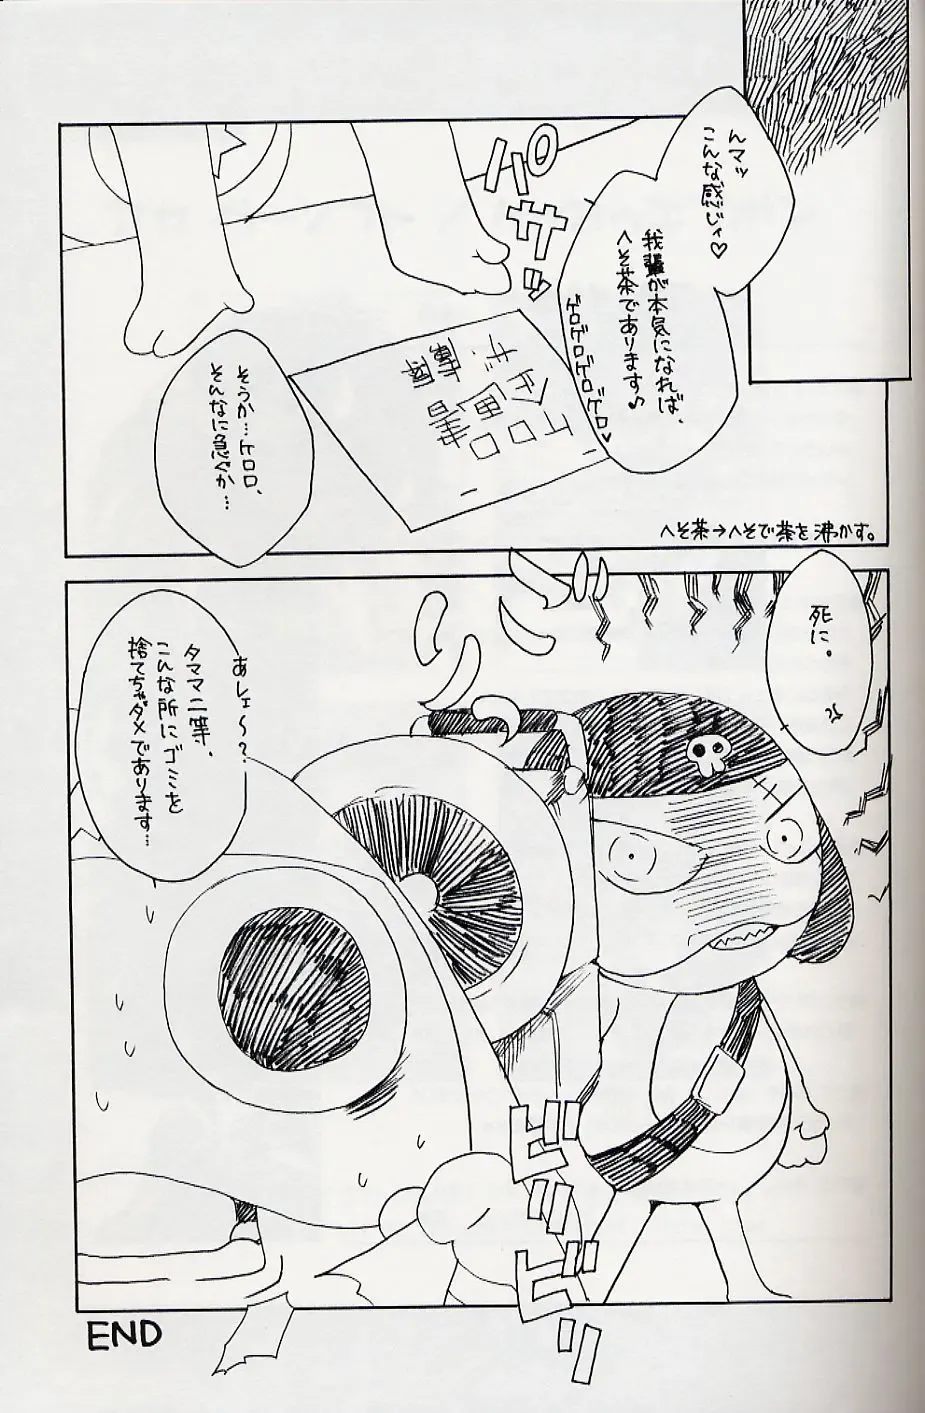 んマッ
こんな感じィ♡
我輩が本気になれば、
へそ茶であります♪
ゲロゲロゲロゲロ♥
パサッ
そうか…ケロロ、
そんなに急ぐか…
へそ茶→へそで茶を沸かす。
死に。
あしェ～?
タママ二等、
こんな所にゴミを
捨てちゃダメであります…
ビビビビ
END